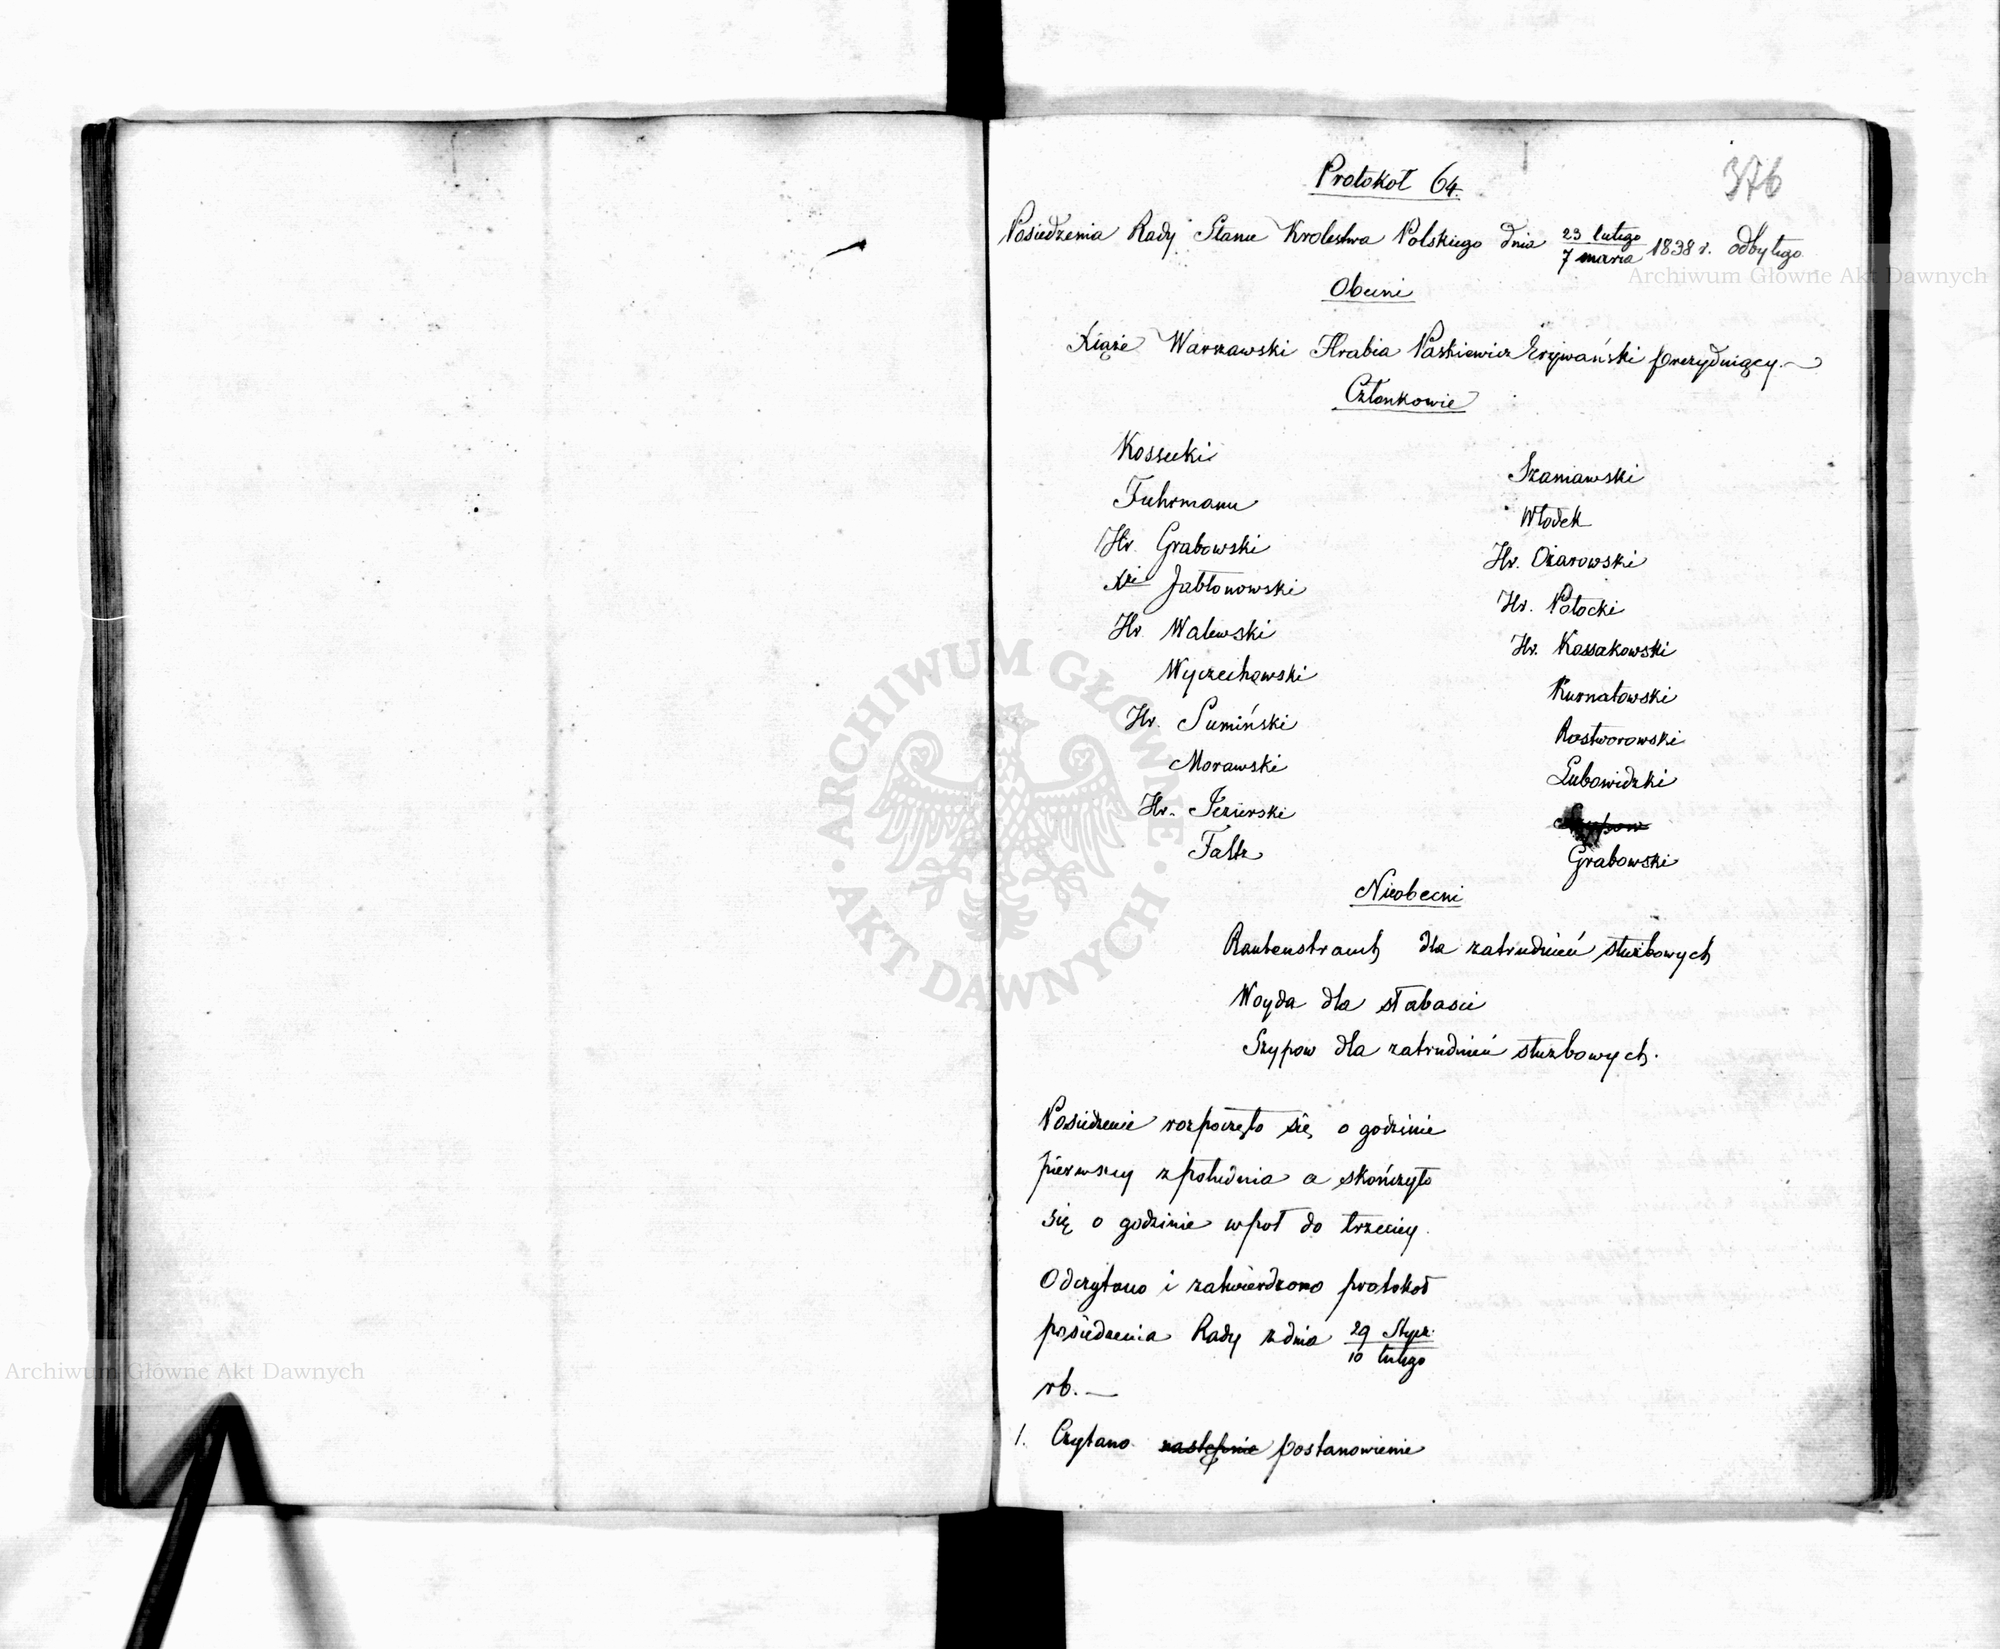 Protokoł 64.
376
Posiedzenia Rady Stanu Krolestwa Polskiego dnia 23 lutego / 7 marca 1838 r. odbytego
Archiwum Główne Akt Dawnych
Obecni
Xiąże Warszawski Hrabia Paskiewicz Erywański prezyduiący.
Członkowie
Kossecki
Fuhrmann
Hr. Grabowski
Xże Jabłonowski
Hr. Walewski
Wyczechowski
Hr. Sumiński
Morawski
Hr. Jezierski
Faltz
Szaniawski
Włodek
Hr. Ożarowski
Hr. Potocki
Hr. Kossakowski
Kurnatowski
Rostworowski
Lubowidzki
Grabowski
Nieobecni
Rautenstrauch dla zatrudnień służbowych
Woyda dla słabości
Szypow dla zatrudnień służbowych.
Posiedzenie rozpoczęło się o godzinie
pierwszey z południa a skończyło
się o godzinie wpoł do trzeciey.
Odczytano i zatwierdzono protokoł
posiedzenia Rady z dnia 29 Stycz. / 10 lutego
rb. —
1. Czytano następnie postanowienie
ARCHIWUM GŁÓWNE
AKT DAWNYCH
Archiwum Główne Akt Dawnych